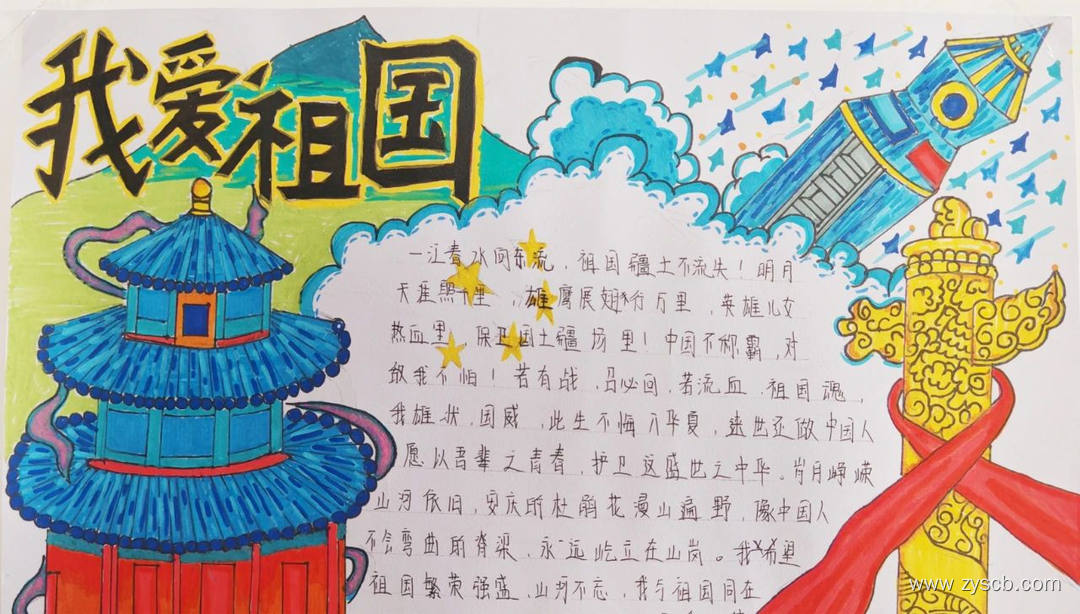 我爱祖国
一江春水向东流，祖国疆土不流失！明月
天涯照千里，雄鹰展翅行万里，英雄儿女
热血里，保卫国土疆场里！中国不称霸，对
敌我不怕！若有战，召必回，若流血，祖国魂，
我雄状，国威，此生不悔入华夏，来世还做中国人
愿以吾辈之青春，护卫这盛世之中华。岁月峥嵘
山河依旧，安庆的杜鹃花漫山遍野，像中国人
不会弯曲的脊梁，永远屹立在山岗。我希望
祖国繁荣强盛，山河不忘，我与祖国同在
www.zyscb.com